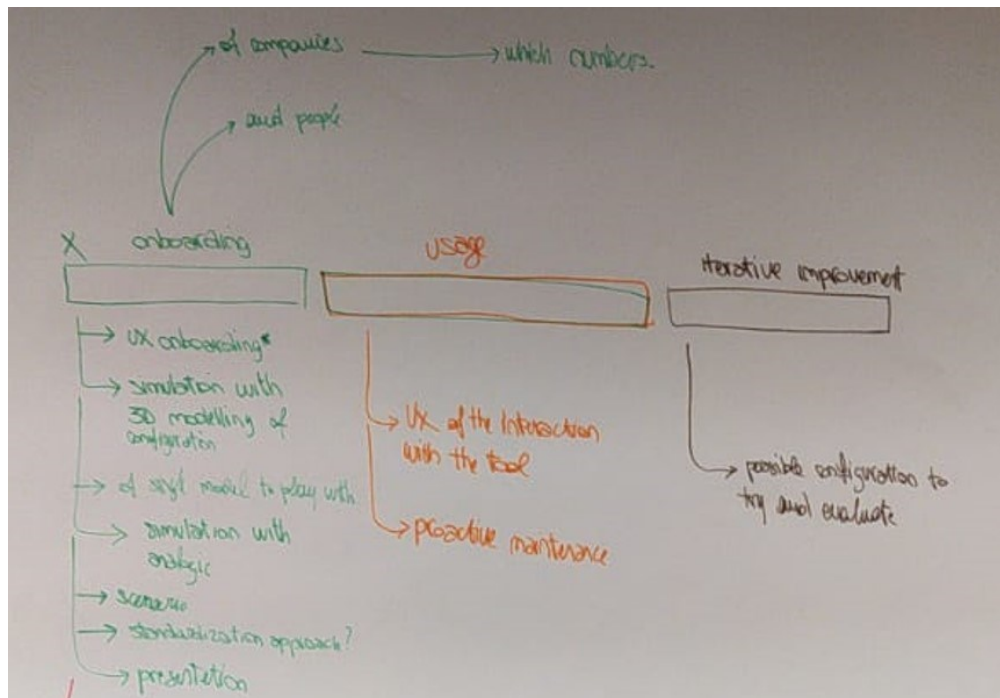 of companies
which numbers.
and people
X onboarding
usage
iterative improvement
UX onboarding*
simulation with
3D modelling of
configuration
of model to play with
simulation with
analogic
scenario
standardization approach?
presentetion
UX of the Interaction
with the tool
proactive maintenance
possible configuration to
try and evaluate